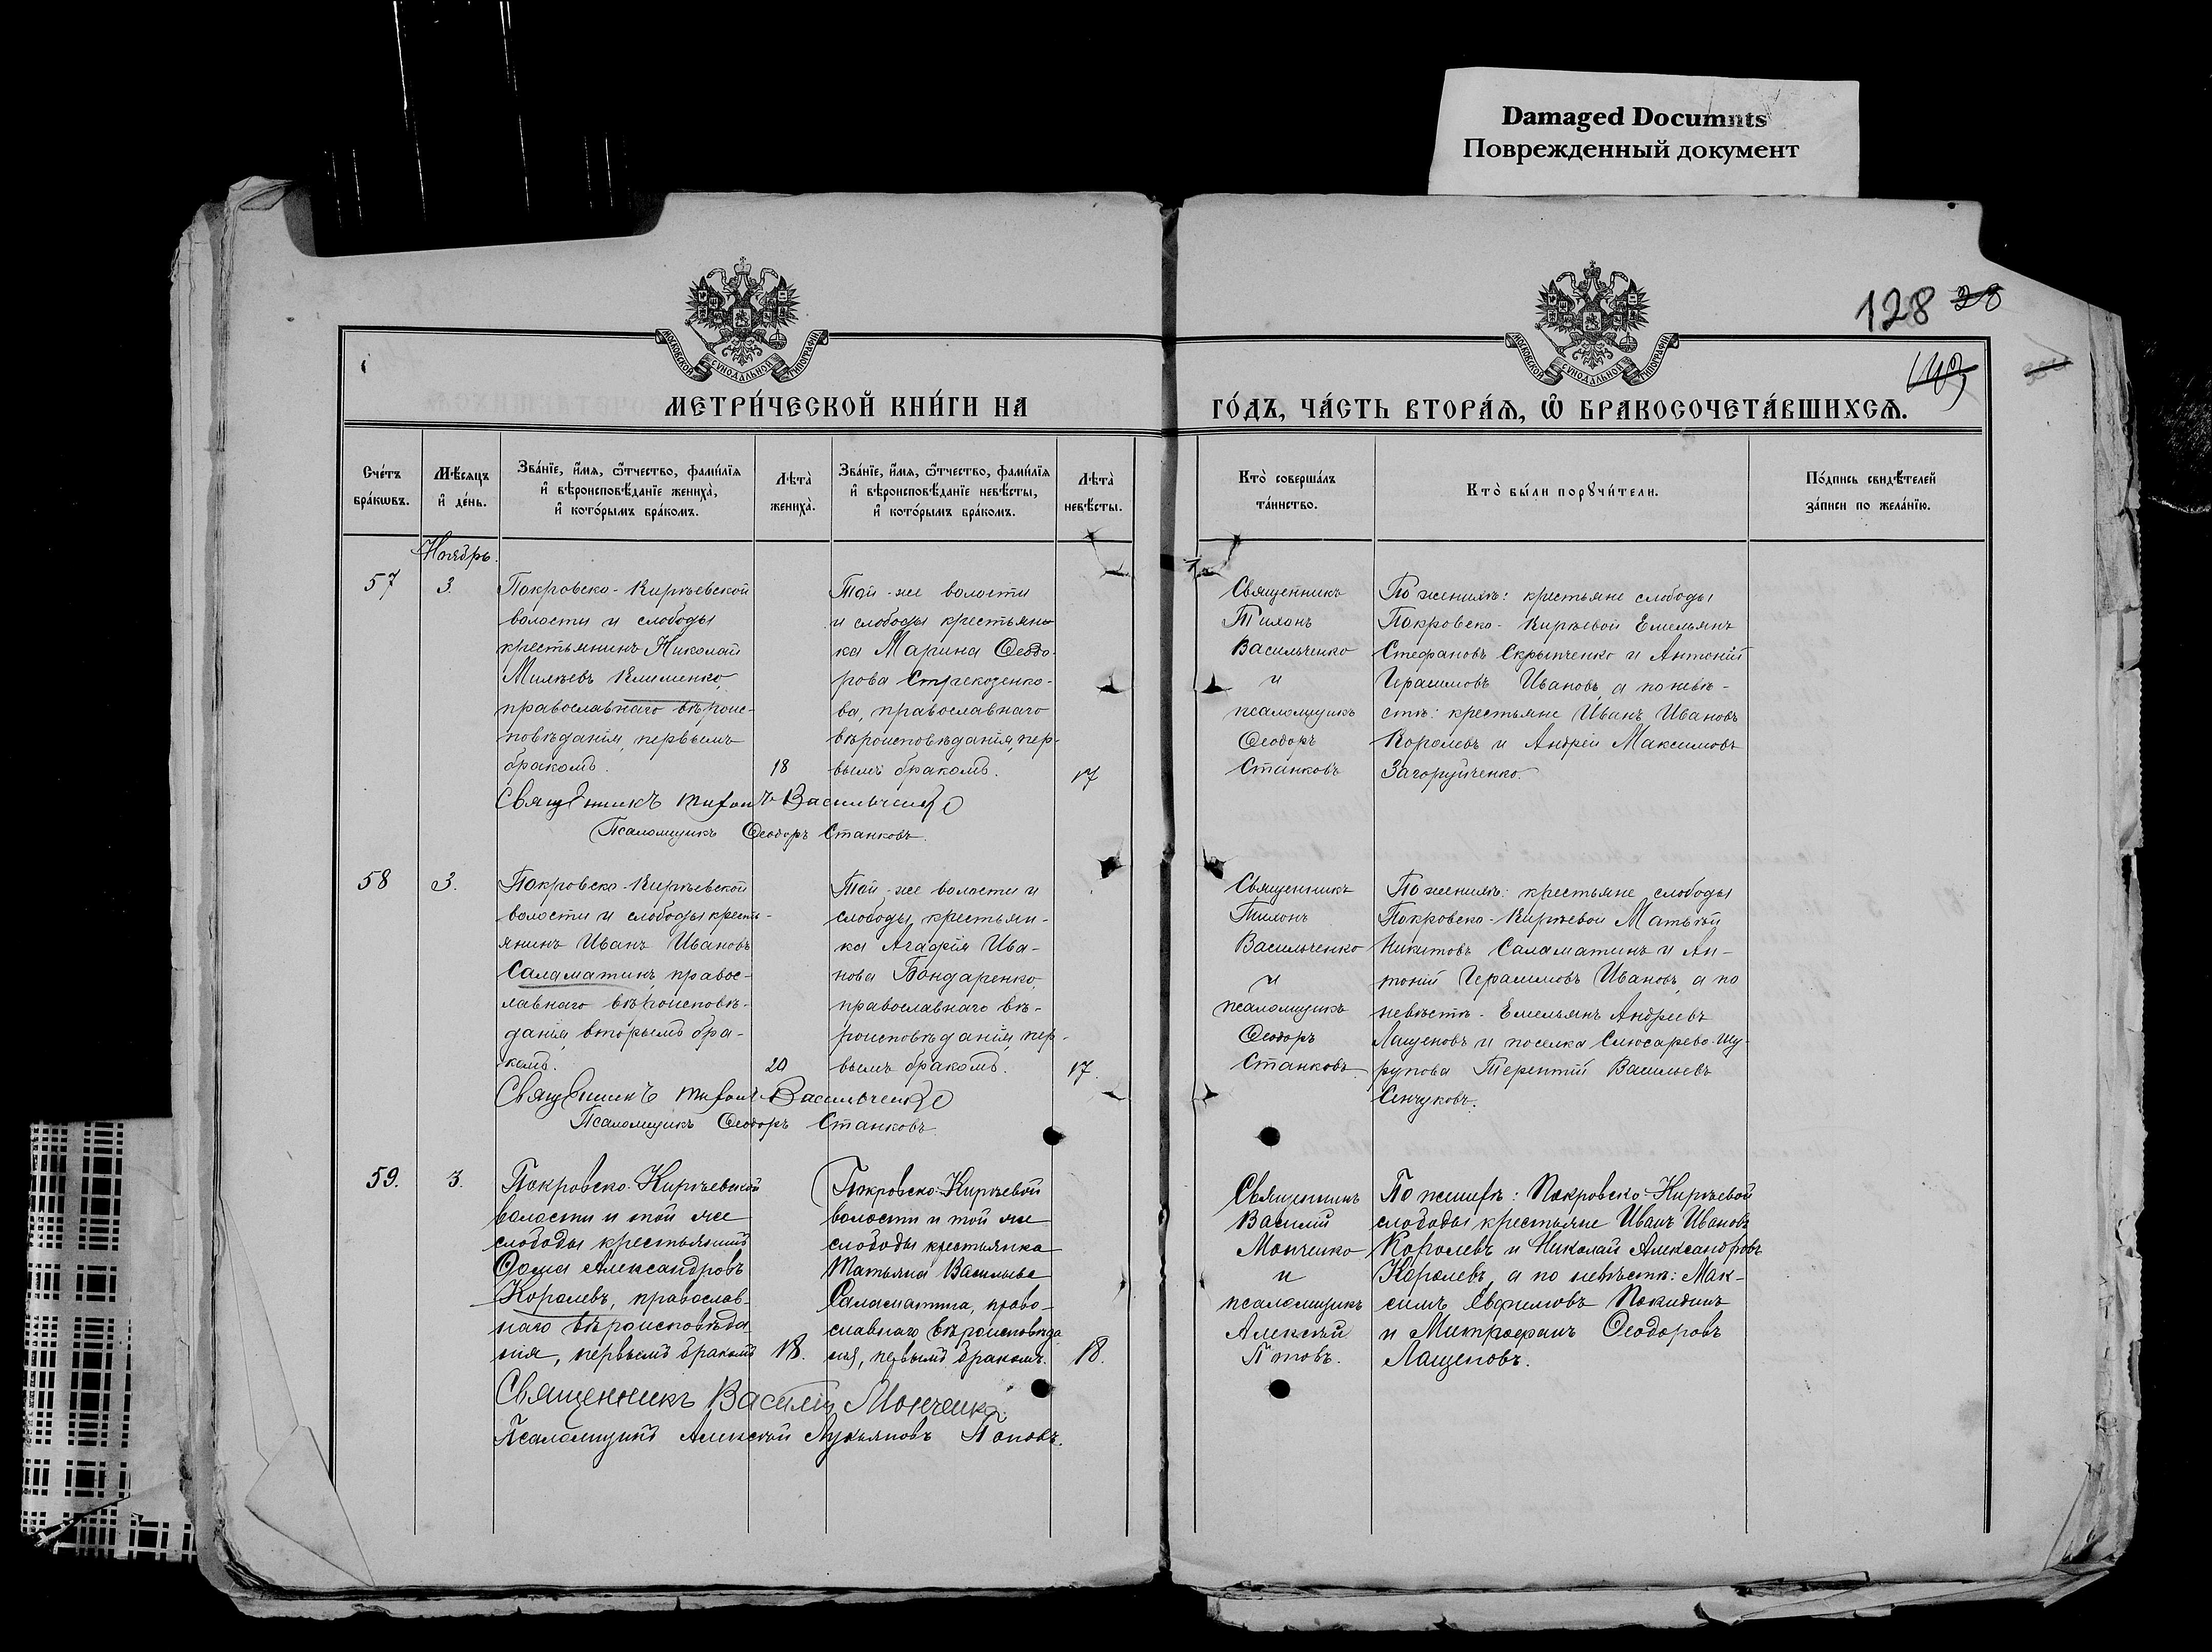 Damaged Documnts
Поврежденный документ
128 28
МОСКОВСКОЙ СѴНОДАЛЬНОЙ ТИПОГРАФІИ
МОСКОВСКОЙ СѴНОДАЛЬНОЙ ТИПОГРАФІИ
МЕТРИ́ЧЕСКОЙ КНИ́ГИ НА
ГО́ДЪ, ЧА́СТЬ ВТОРА́Я, Ѽ БРАКОСОЧЕТА́ВШИХСЯ.
Сче́тъ бра́кωвъ.
Мѣ́сяцъ и҆ де́нь.
Зва́нїе, и҆́мя, ѻ҆́тчество, фами́лїя и҆ вѣроисповѣ́данїе жениха̀, и҆ кото́рымъ бра́комъ.
Лѣта̀ жениха̀.
Зва́нїе, и҆́мя, ѻ҆́тчество, фами́лїя и҆ вѣроисповѣ́данїе невѣ́сты, и҆ кото́рымъ бра́комъ.
Лѣта̀ невѣ́сты.
Кто̀ соверша́лъ та́инство.
Кто̀ бы́ли порꙋчи́тели.
По́дпись свидѣ́телей за́писи по жела́нїю.
Ноябрь.
57
3.
Покровско-Кирѣевской
волости и слободы
крестьянинъ Николай
Михѣевъ Клименко,
православнаго вѣроис-
повѣданія, первымъ
бракомъ.
18
Той-же волости
и слободы крестьян-
ка Марина Ѳеодо-
рова Стрекозенко-
ва, православнаго
вѣроисповѣданія, пер-
вымъ бракомъ.
17
Священникъ
Тихонъ
Васильченко
и
псаломщикъ
Ѳеодоръ
Станковъ
По женихѣ: крестьяне слободы
Покровско-Кирѣевой Емельянъ
Стефановъ Скрыпченко и Антоній
Герасимовъ Ивановъ, а по невѣ-
стѣ: крестьяне Иванъ Ивановъ
Королевъ и Андрей Максимовъ
Загоруйченко.
Священникъ Тихонъ Васильченко
Псаломщикъ Ѳеодоръ Станковъ.
58
3.
Покровско-Кирѣевской
волости и слободы кресть-
янинъ Иванъ Ивановъ
Саламатинъ, правос-
лавнаго вѣроисповѣ-
данія, вторымъ бра-
комъ.
20
Той-же волости и
слободы, крестьян-
ка Агафія Ива-
нова Бондаренко,
православнаго вѣ-
роисповѣданія, пер-
вымъ бракомъ.
17.
Священникъ
Тихонъ
Васильченко
и
псаломщикъ
Ѳеодоръ
Станковъ
По женихѣ: крестьяне слободы
Покровско-Кирѣевой Матвѣй
Никитовъ Саламатинъ и Ан-
тоній Герасимовъ Ивановъ, а по
невѣстѣ- Емельянъ Андреевъ
Лащеновъ и поселка Слюсарево-Щу-
рупова Терентій Васильевъ
Сенчуковъ.
Священникъ Тихонъ Васильченко
Псаломщикъ Ѳеодоръ Станковъ.
59.
3.
Покровско-Кирѣевской
волости и той же
слободы крестьянинъ
Ѳома Александровъ
Королевъ, православ-
наго вѣроисповѣда-
нія, первымъ бракомъ
18.
Покровско-Кирѣевой
волости и той же
слободы крестьянка
Татьяна Васильева
Саламатина, право-
славнаго вѣроисповѣда
нія, первымъ бракомъ.
18.
Священникъ
Василій
Монченко
и
псаломщикъ
Алексѣй
Поповъ.
По женихѣ: Покровско-Кирѣевой
слободы крестьяне Иванъ Ивановъ
Королевъ и Николай Александровъ
Королевъ, а по невѣстѣ: Мак-
симъ Евфимовъ Покидинъ
и Митрофанъ Ѳеодоровъ
Лащеновъ.
Священникъ Василій Монченко
Псаломщикъ Алексѣй Лукьяновъ Поповъ.